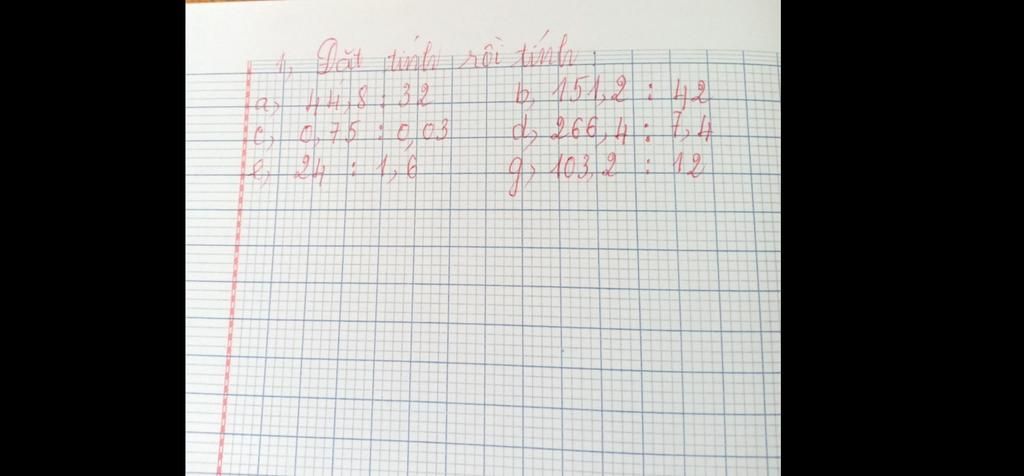 1, Đặt tính rồi tính :
a, 44,8 : 32 b, 151,2 : 42
c, 0,75 : 0,03 d, 266,4 : 7,4
e, 24 : 1,6 g, 103,2 : 12